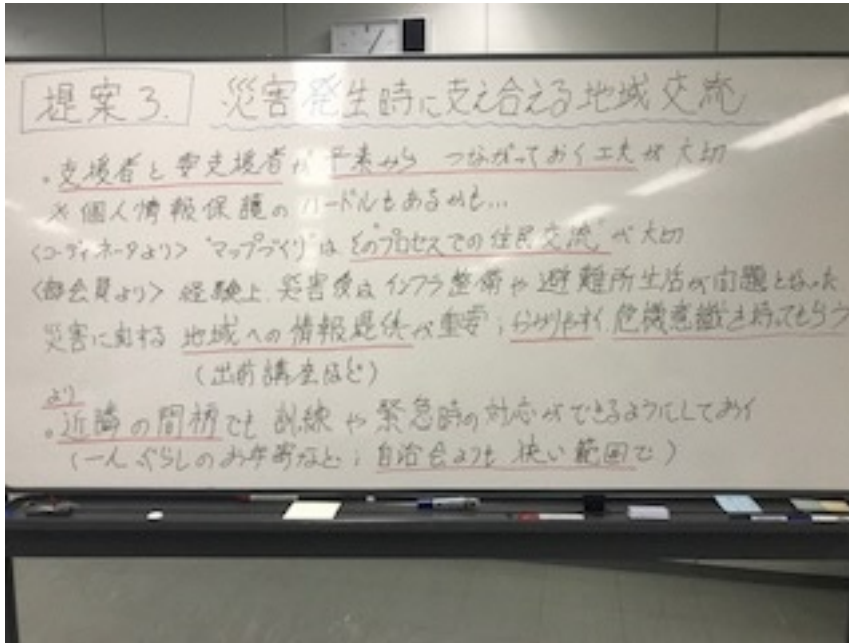 提案3. 災害発生時に支え合える地域交流
・支援者と要支援者が平素から つながっておく工夫が大切
※個人情報保護のハードルもあるかも...
<コーディネータより> "マップづくり"は そのプロセスでの住民交流"が大切
<部会員より> 経験上、災害後は インフラ整備や避難所生活が問題となった
災害に対する 地域への情報提供が重要；分かりやすく 危機意識を持ってもらう
(出前講座など)
より
・近隣の間柄でも 訓練や緊急時の対応ができるようにしておく
(一人ぐらしのお年寄など；自治会よりも 狭い範囲で)